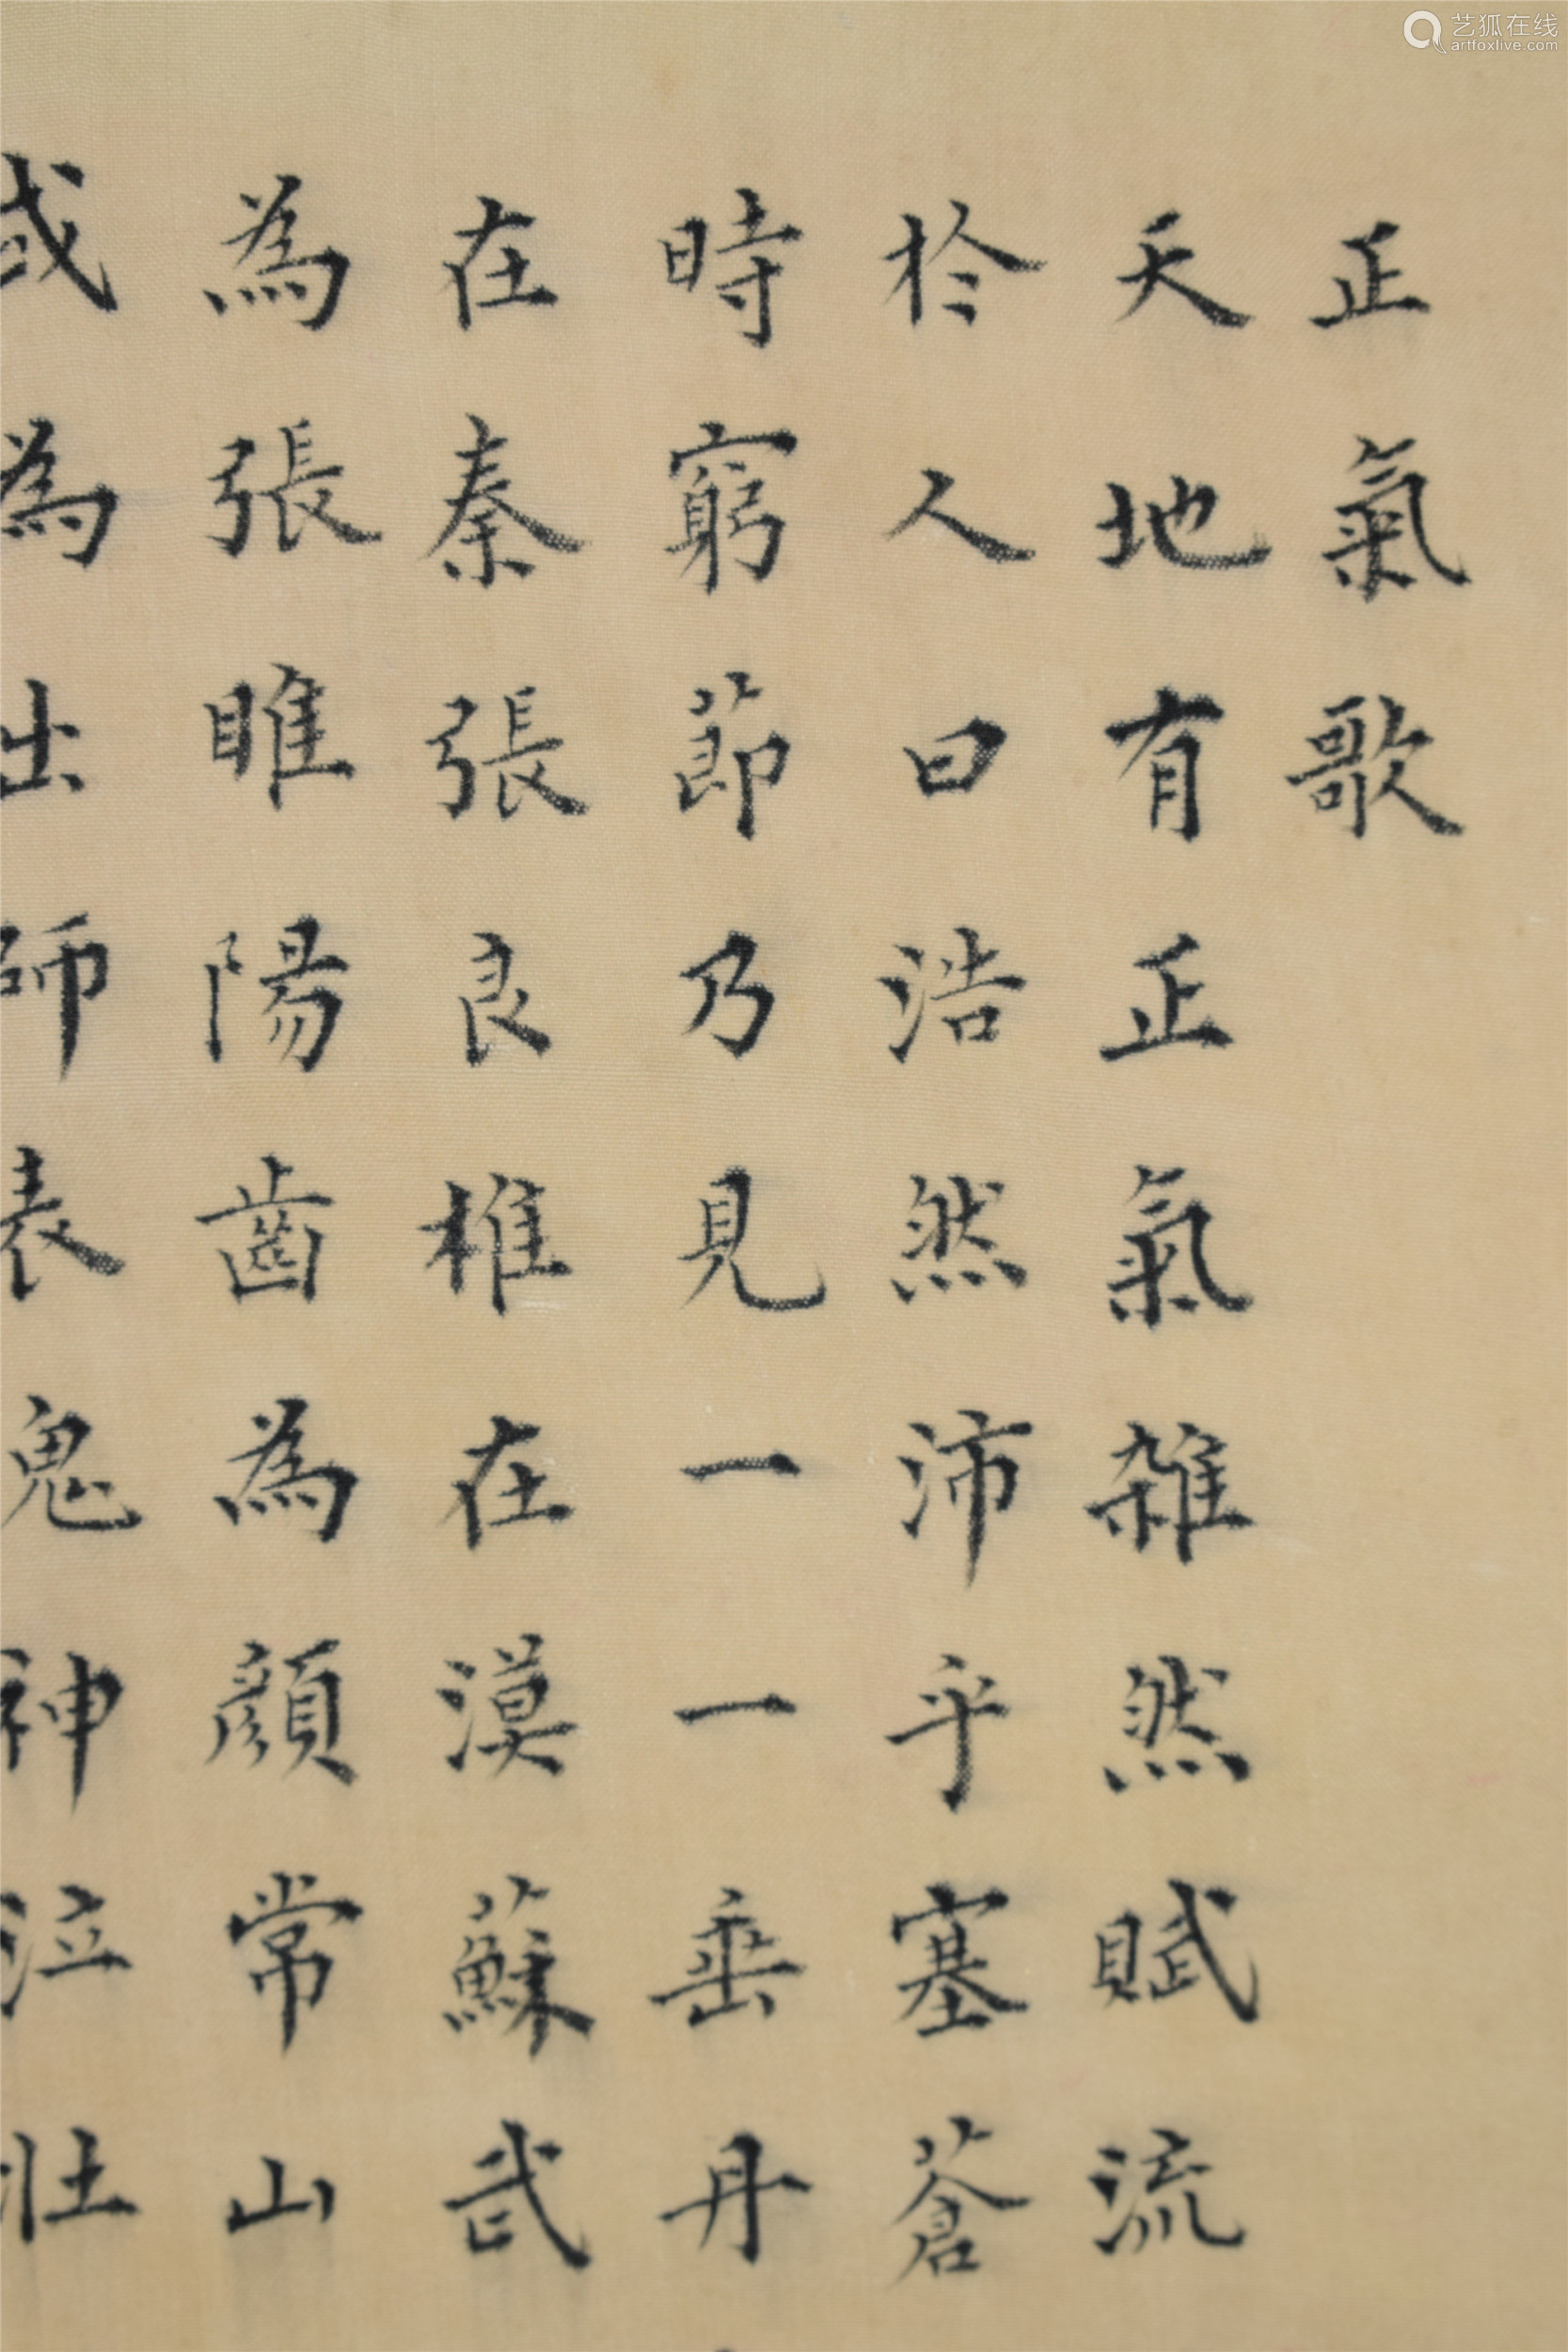 正氣歌
天地有正氣雑然賦流
於人曰浩然沛乎塞蒼
時窮節乃見一一垂丹
在秦張良椎在漠蘇武
為張睢陽齒為顔常山
或為出師表鬼神泣壯
艺狐在线
artfoxlive.com